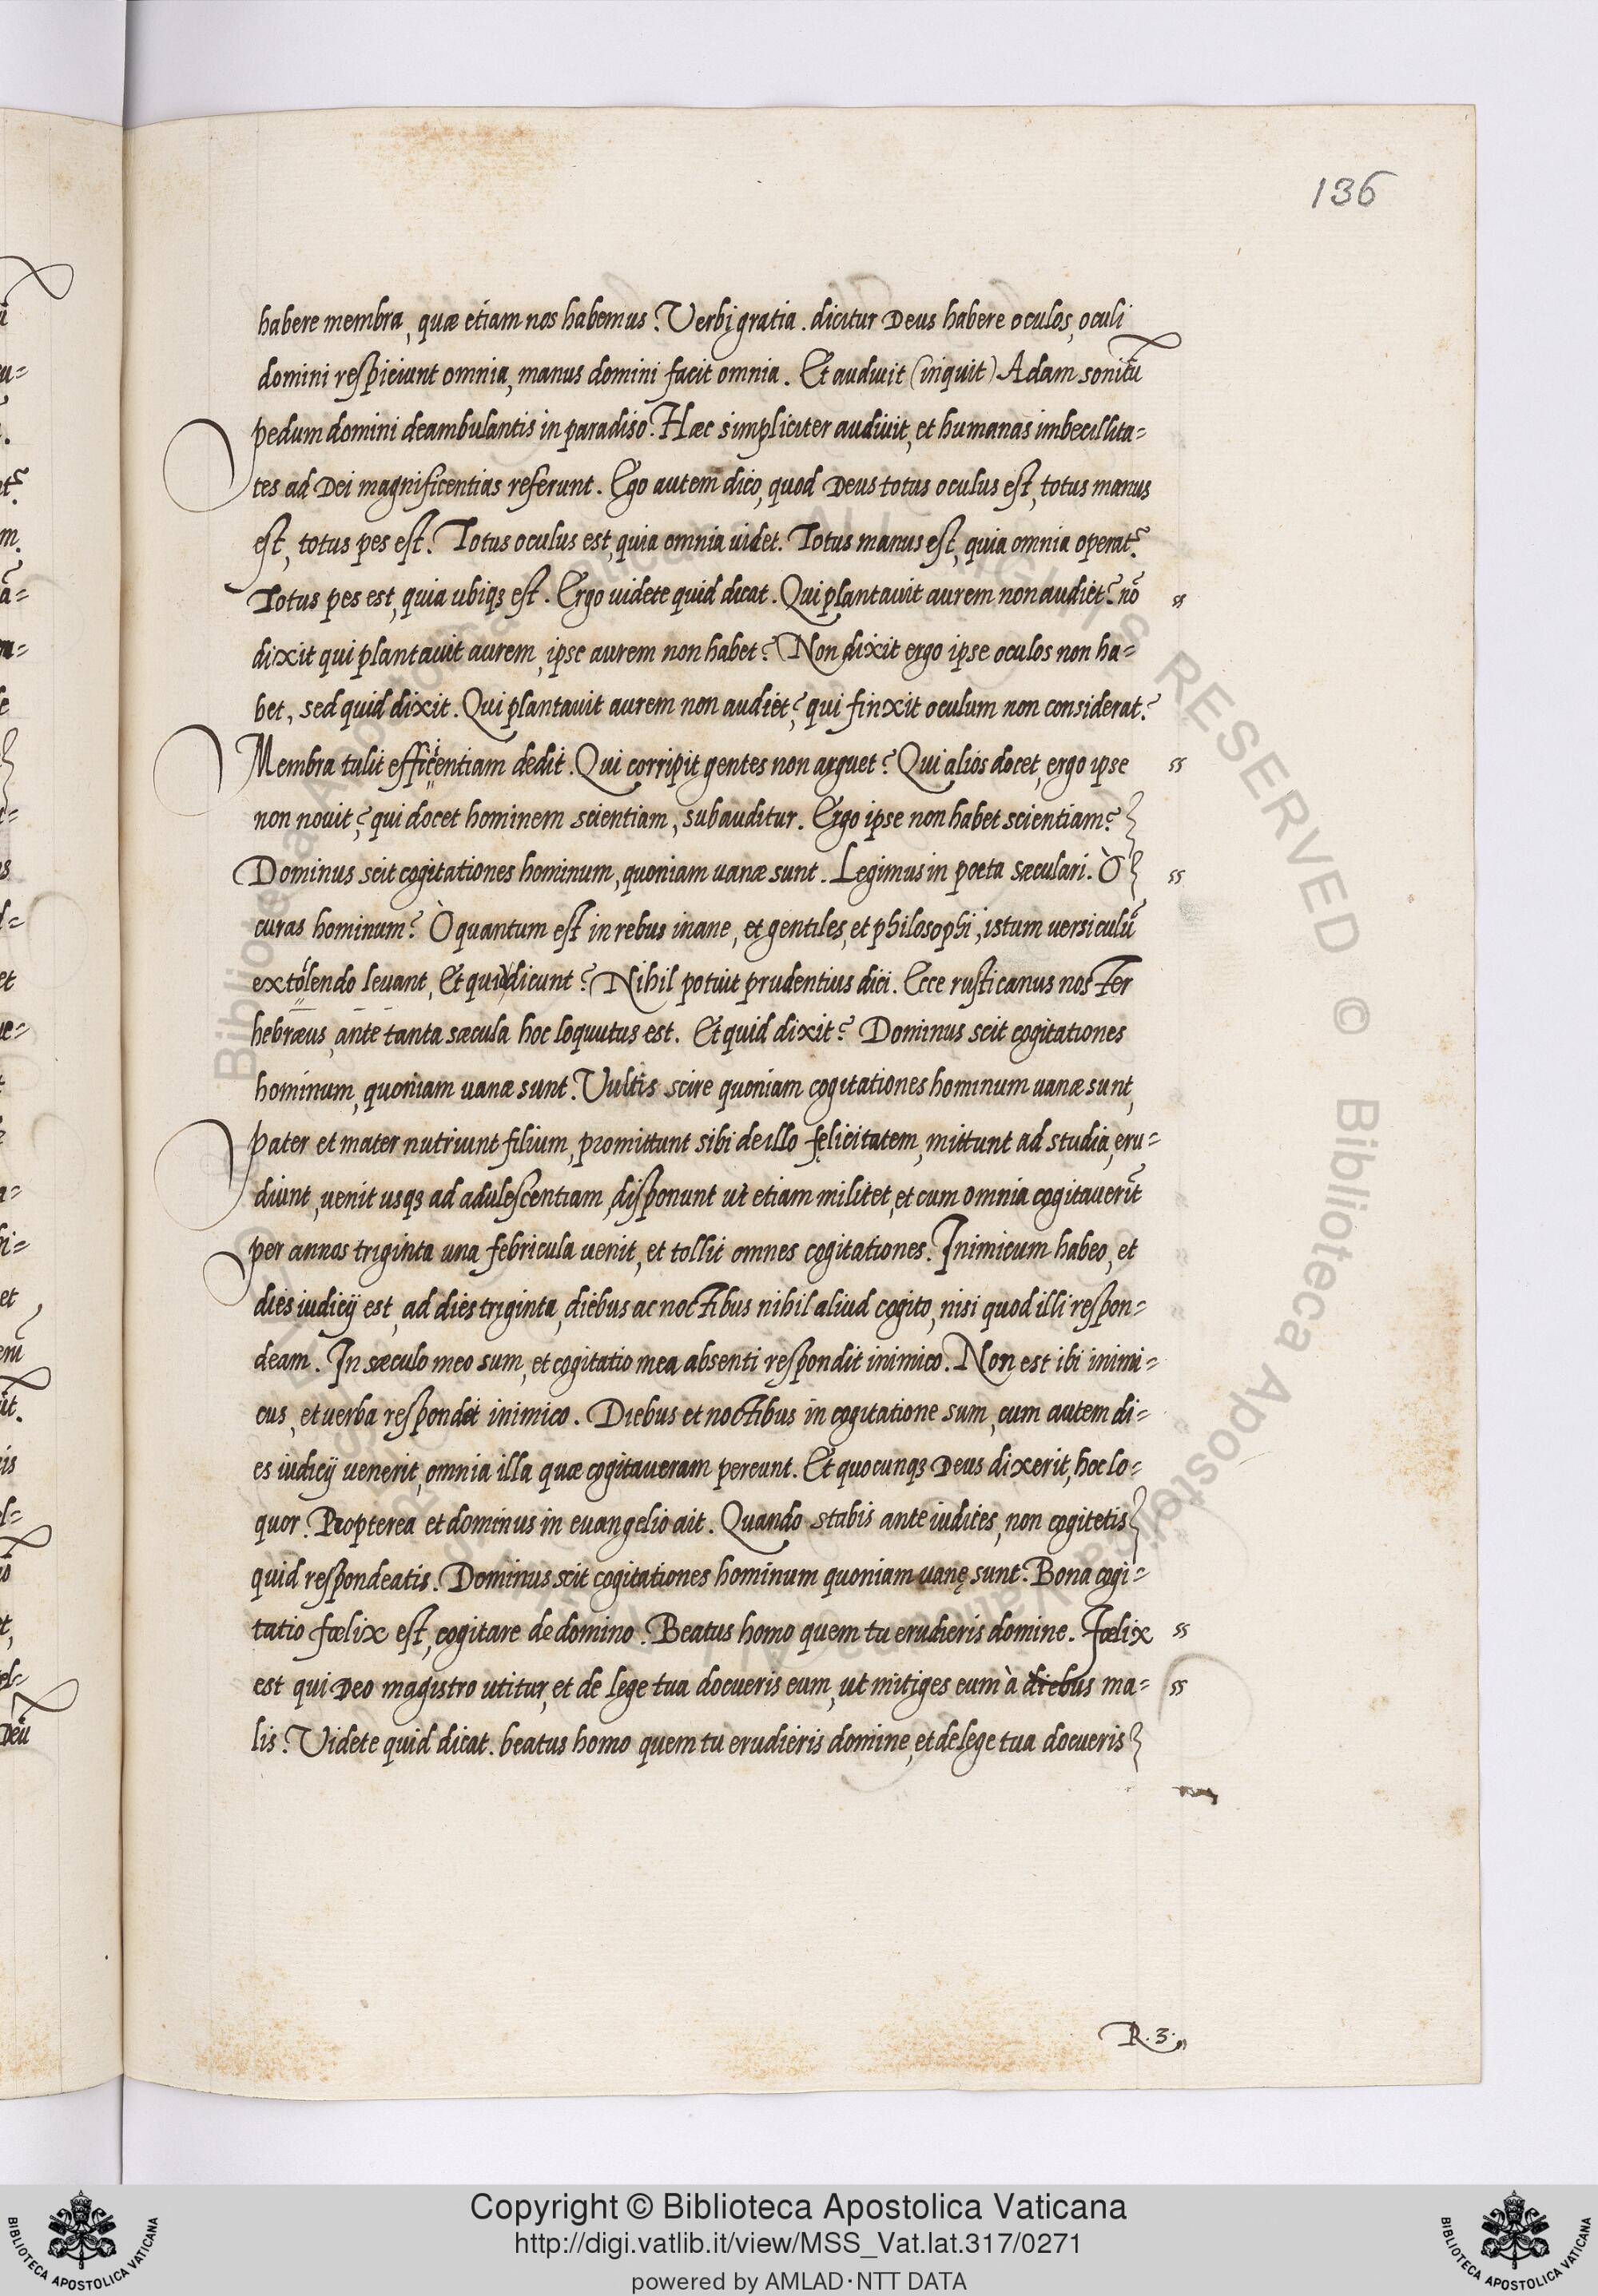 136
habere membra, quæ etiam nos habemus? Verbi gratia. dicitur Deus habere oculos, oculi
domini respiciunt omnia, manus domini facit omnia. Et audivit (inquit) Adam sonitū
pedum domini deambulantis in paradiso? Hæc simpliciter audiuit, et humanas imbecillita=
tes ad Dei magnificentias referunt. Ego autem dico, quod Deus totus oculus est, totus manus
est, totus pes est. Totus oculus est, quia omnia uidet. Totus manus est, quia omnia operat.ᷣ
Totus pes est, quia ubiqꝫ est. Ergo uidete quid dicat. Qui plantavit aurem non audiet? nō
dixit qui plantauit aurem, ipse aurem non habet? Non dixit ergo ipse oculos non ha=
bet, sed quid dixit. Qui plantauit aurem non audiet? qui finxit oculum non considerat?
Membra tulit efficientiam dedit. Qui corripit gentes non arguet? Qui alios docet, ergo ipse
non nouit? qui docet hominem scientiam, subauditur. Ergo ipse non habet scientiam?
Dominus scit cogitationes hominum, quoniam uanæ sunt. Legimus in poeta sæculari. Ò
curas hominum? Ò quantum est in rebus inane, et gentiles, et philosophi, istum versiculū
extolendo leuant, Et quid dicunt? Nihil potuit prudentius dici. Ecce rusticanus noster
hebræus, ante tanta sæcula hoc loquutus est. Et quid dixit? Dominus scit cogitationes
hominum, quoniam uanæ sunt. Vultis scire quoniam cogitationes hominum uanæ sunt,
pater et mater nutriunt filium, promittunt sibi de illo fęlicitatem, mittunt ad studia, eru=
diunt, uenit usqꝫ ad adulescentiam, disponunt ut etiam militet, et cum omnia cogitauerīt
per annos triginta una febricula uenit, et tollit omnes cogitationes. Inimicum habeo, et
dies iudicij est, ad dies triginta, diebus ac noctibus nihil aliud cogito, nisi quod illi respon=
deam. In sæculo meo sum, et cogitatio mea absenti respondit inimico. Non est ibi inimi=
cus, et uerba respondet inimico. Diebus et noctibus in cogitatione sum, cum autem di=
es iudicij uenerit, omnia illa quæ cogitaueram pereunt. Et quocunqꝫ Deus dixerit, hoc lo=
quor. Propterea et dominus in euangelio ait. Quando stabis ante iudices, non cogitetis
quid respondeatis. Dominus scit cogitationes hominum quoniam uanę sunt. Bona cogi=
tatio fœlix est, cogitare de domino. Beatus homo quem tu erudieris domine. Fœlix
est qui Deo magistro utitur, et de lege tua docueris eum, ut mitiges eum à diebus ma=
lis. Videte quid dicat. beatus homo quem tu erudieris domine, et de lege tua docueris
R. 3.
Copyright © Biblioteca Apostolica Vaticana
http://digi.vatlib.it/view/MSS_Vat.lat.317/0271
powered by AMLAD·NTT DATA
BIBLIOTECA APOSTOLICA VATICANA
BIBLIOTECA APOSTOLICA VATICANA